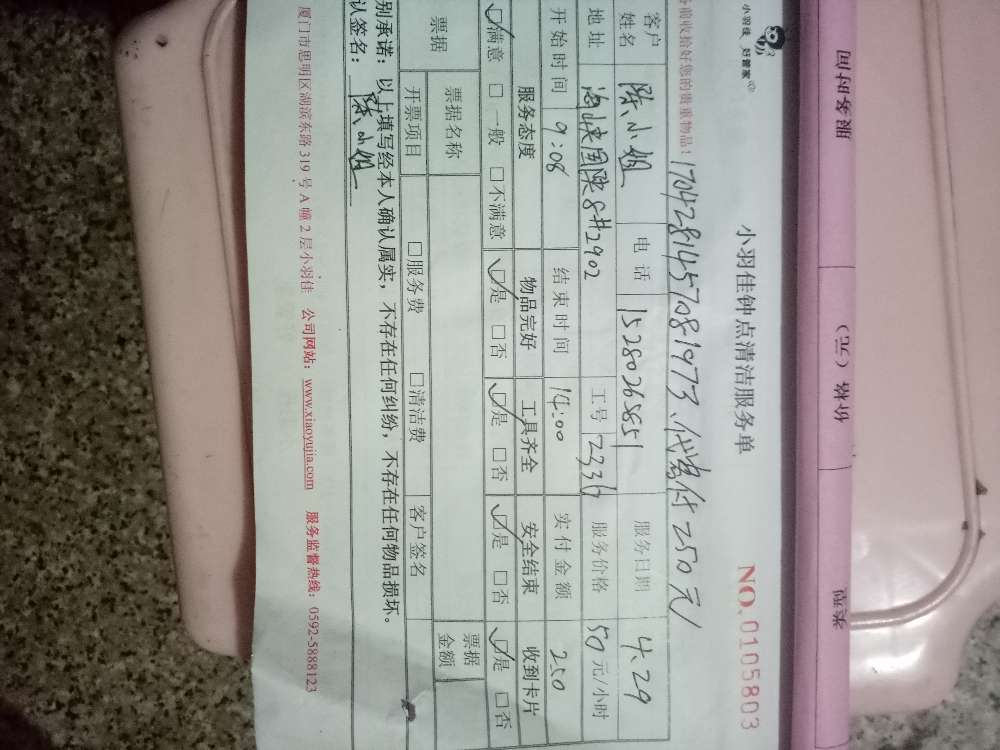 小羽佳 好管家
小羽佳钟点清洁服务单
NO. 0105803
前收拾好您的贵重物品!
1704281457081973.代客付250元
客户姓名 陈小姐 电话 15280265851 服务日期 4.29
地址 海峡国际8#2902 工号 2336 服务价格 50元/小时
开始时间 9:08 结束时间 14:00 实付金额 250
服务态度 物品完好 工具齐全 安全结束 收到卡片
☑满意 □一般 □不满意 ☑是 □否 ☑是 □否 ☑是 □否 ☑是 □否
票据 票据名称 票据金额
开票项目 □服务费 □清洁费 客户签名
别承诺:以上填写经本人确认属实,不存在任何纠纷,不存在任何物品损坏。
认签名:陈小姐
厦门市思明区湖滨东路319号A幢2层小羽佳 公司网站:www.xiaoyujia.com 服务监督热线:0592-5888123
服务时间 价格(元) 类型